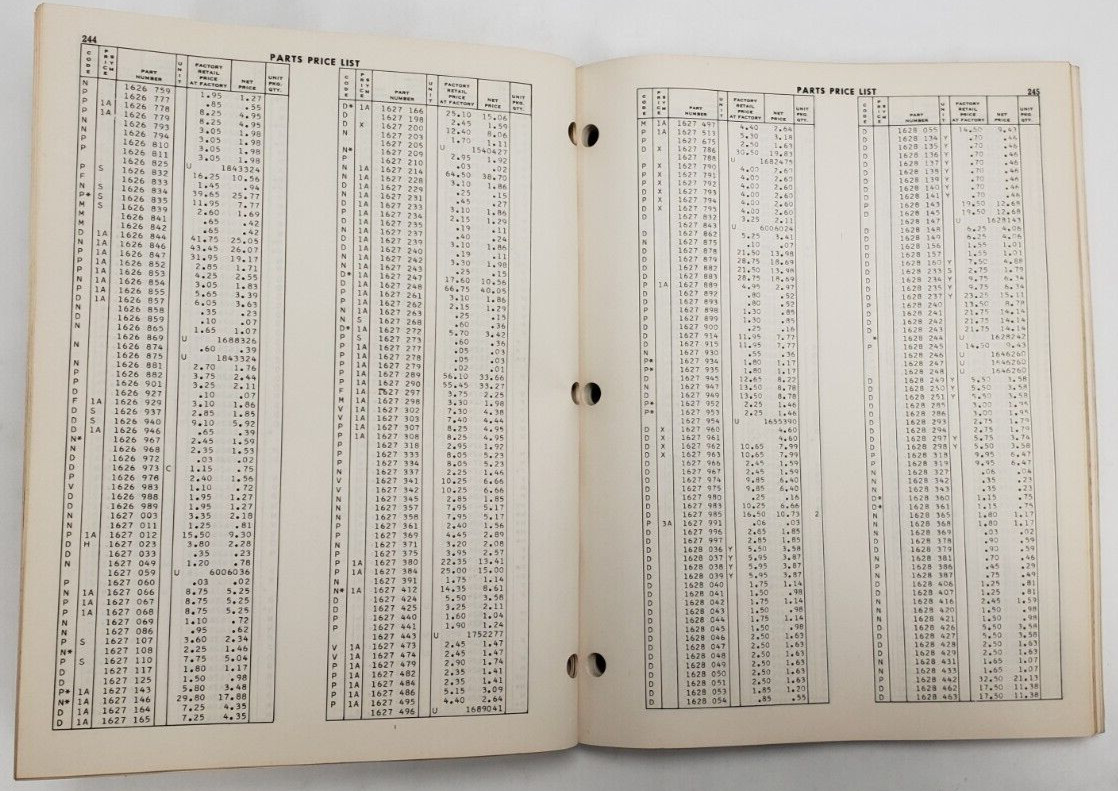 244
PARTS PRICE LIST
CODE PRICE SYM PART NUMBER UNIT FACTORY RETAIL PRICE AT FACTORY NET PRICE UNIT PKG. QTY.
N 1626 759 1.95 1.27
P 1626 777 .85 .55
P 1A 1626 778 8.25 4.95
N 1A 1626 779 8.25 4.95
P 1626 793 3.05 1.98
P 1626 794 3.05 1.98
P 1626 810 3.05 1.98
P 1626 811 3.05 1.98
1626 825 U 1843324
P S 1626 832 16.25 10.56
F 1626 833 1.45 .94
N S 1626 834 39.65 25.77
P* S 1626 835 11.95 7.77
M S 1626 839 2.60 1.69
M 1626 841 .65 .42
M 1626 842 .65 .42
D 1A 1626 844 41.75 25.05
N 1A 1626 846 43.45 26.07
P 1A 1626 847 31.95 19.17
P 1A 1626 852 2.85 1.71
P 1A 1626 853 4.25 2.55
N 1A 1626 854 3.05 1.83
P 1A 1626 855 5.65 3.39
P 1A 1626 857 6.05 3.63
D 1626 858 .35 .23
N 1626 859 .10 .07
D 1626 865 1.65 1.07
1626 869 U 1688326
N 1626 874 .60 .39
1626 875 U 1843324
N 1626 881 2.70 1.76
P 1626 882 3.75 2.44
P 1626 901 3.25 2.11
D 1626 927 .10 .07
F 1A 1626 929 3.10 1.86
D S 1626 937 2.85 1.85
D S 1626 940 9.10 5.92
D 1A 1626 946 .65 .39
N* 1626 967 2.45 1.59
N 1626 968 2.35 1.53
D 1626 972 .03 .02
D 1626 973 C 1.15 .75
P 1626 978 2.40 1.56
V 1626 983 1.10 .72
D 1626 988 1.95 1.27
N 1626 989 1.95 1.27
N 1627 003 3.35 2.18
N 1627 011 1.25 .81
P 1A 1627 012 15.50 9.30
D H 1627 023 3.80 2.28
D 1627 033 .35 .23
N 1627 049 1.20 .78
1627 059 U 6006036
P 1627 060 .03 .02
N 1A 1627 066 8.75 5.25
P 1A 1627 067 8.75 5.25
P 1A 1627 068 8.75 5.25
N 1627 069 1.10 .72
N 1627 086 .95 .62
P S 1627 107 3.60 2.34
N* 1627 108 2.25 1.46
P S 1627 110 7.75 5.04
D 1627 117 1.80 1.17
D 1627 125 1.50 .98
P* 1A 1627 143 5.80 3.48
N* 1A 1627 146 29.80 17.88
D 1A 1627 164 7.25 4.35
D 1A 1627 165 7.25 4.35
CODE PRICE SYM PART NUMBER UNIT FACTORY RETAIL PRICE AT FACTORY NET PRICE UNIT PKG. QTY.
D* 1A 1627 166 25.10 15.06
1627 198 2.45 1.59
1627 200 12.40 8.06
1627 203 1.70 1.11
1627 205 U 1540427
1627 209 2.95 1.92
1627 210 .03 .02
1627 214 64.50 38.70
1627 228 3.10 1.86
1627 229 .25 .15
1627 231 .45 .27
1627 233 3.10 1.86
1627 234 2.15 1.29
1627 235 .19 .11
1627 237 .40 .24
1627 239 3.10 1.86
1627 240 .19 .11
1627 242 3.30 1.98
1627 243 .25 .15
1627 247 17.60 10.56
1627 248 66.75 40.05
1627 261 3.10 1.86
1627 262 2.15 1.29
1627 263 .25 .15
1627 268 .60 .36
1627 272 5.70 3.42
1627 273 .60 .36
1627 277 .05 .03
1627 278 .05 .03
1627 279 .02 .01
1627 289 56.10 33.66
1627 290 55.45 33.27
1627 297 3.75 2.25
1627 298 3.30 1.98
1627 302 7.30 4.38
1627 303 7.40 4.44
1627 307 8.25 4.95
1627 308 8.25 4.95
1627 318 2.95 1.92
1627 333 8.05 5.23
1627 334 8.05 5.23
1627 337 2.25 1.46
1627 341 10.25 6.66
1627 342 10.25 6.66
1627 345 2.85 1.85
1627 357 7.95 5.17
1627 358 7.95 5.17
1627 361 2.40 1.56
1627 369 4.45 2.89
1627 371 3.20 2.08
1627 375 3.95 2.57
P 1A 1627 380 22.35 13.41
P 1A 1627 384 25.00 15.00
N 1627 391 1.75 1.14
N* 1A 1627 412 14.35 8.61
D 1627 424 5.50 3.58
D 1627 425 3.25 2.11
P 1627 440 1.60 1.04
P 1627 441 1.90 1.24
1627 443 U 1752277
V 1A 1627 473 2.45 1.47
V 1A 1627 474 2.45 1.47
P 1A 1627 479 2.90 1.74
P 1A 1627 482 2.35 1.41
P 1A 1627 484 2.35 1.41
P 1A 1627 486 5.15 3.09
P 1A 1627 495 4.40 2.64
1627 496 U 1689041
PARTS PRICE LIST
245
CODE PRICE SYM PART NUMBER UNIT FACTORY RETAIL PRICE AT FACTORY NET PRICE UNIT PKG. QTY.
M 1A 1627 497 4.40 2.64
P 1A 1627 511 5.30 3.18
P 1627 675 2.50 1.63
D X 1627 786 30.50 19.83
1627 788 U 1682475
P X 1627 790 4.00 2.60
P X 1627 791 4.00 2.60
P X 1627 792 4.00 2.60
P X 1627 793 4.00 2.60
P X 1627 794 4.00 2.60
P X 1627 795 4.00 2.60
D 1627 832 3.25 2.11
1627 843 U 6006024
D 1627 862 5.25 3.41
N 1627 875 .10 .07
D 1627 878 21.50 13.98
D 1627 879 28.75 18.69
D 1627 882 21.50 13.98
D 1627 883 28.75 18.69
P 1A 1627 889 4.95 2.97
D 1627 892 .80 .52
D 1627 893 .80 .52
P 1627 898 1.30 .85
P 1627 899 1.30 .85
D 1627 900 .25 .16
D 1627 914 11.95 7.77
D 1627 915 11.95 7.77
N 1627 930 .55 .36
P* 1627 934 1.80 1.17
P* 1627 935 1.80 1.17
D 1627 945 12.65 8.22
N 1627 947 13.50 8.78
D 1627 949 13.50 8.78
P* 1627 952 2.25 1.46
P* 1627 953 2.25 1.46
1627 954 U 1655390
D X 1627 960 4.60
D X 1627 961 4.60
D X 1627 962 10.65 7.99
D X 1627 963 10.65 7.99
D 1627 966 2.45 1.59
D 1627 967 2.45 1.59
D 1627 974 9.85 6.40
D 1627 975 9.85 6.40
D 1627 980 .25 .16
D 1627 983 10.25 6.66
D 1627 985 16.50 10.73 2
P 3A 1627 991 .06 .03
D 1627 996 2.85 1.85
D 1627 997 2.85 1.85
D 1628 036 Y 5.50 3.58
D 1628 037 Y 5.95 3.87
D 1628 038 Y 5.95 3.87
D 1628 039 Y 5.95 3.87
D 1628 040 1.75 1.14
D 1628 041 1.50 .98
D 1628 042 1.75 1.14
D 1628 043 1.50 .98
D 1628 044 1.75 1.14
D 1628 045 1.50 .98
D 1628 046 2.50 1.63
D 1628 047 2.50 1.63
D 1628 048 2.50 1.63
D 1628 049 2.50 1.63
D 1628 050 2.50 1.63
D 1628 051 2.50 1.63
D 1628 053 1.85 1.20
D 1628 054 .85 .55
CODE PRICE SYM PART NUMBER UNIT FACTORY RETAIL PRICE AT FACTORY NET PRICE UNIT PKG. QTY.
D 1628 055 14.50 9.43
D 1628 134 Y .70 .46
D 1628 135 Y .70 .46
D 1628 136 Y .70 .46
D 1628 137 Y .70 .46
D 1628 138 Y .70 .46
D 1628 139 Y .70 .46
D 1628 140 Y .70 .46
D 1628 141 Y .70 .46
1628 143 19.50 12.68
1628 145 19.50 12.68
1628 148 U 1628143
1628 149 6.25 4.06
1628 156 1.55 1.01
1628 157 1.55 1.01
1628 160 Y 7.50 4.88
1628 233 2.75 1.79
1628 234 9.75 6.34
1628 235 Y 9.75 6.34
1628 237 Y 23.25 15.11
1628 240 13.50 8.78
1628 241 21.75 14.14
1628 242 21.75 14.14
1628 243 21.75 14.14
1628 244 U 1628242
1628 245 14.50 9.43
1628 246 U 1646260
1628 247 U 1646260
1628 248 U 1646260
D 1628 249 Y 5.50 3.58
D 1628 250 Y 5.50 3.58
D 1628 251 Y 5.50 3.58
D 1628 285 3.00 1.95
D 1628 286 3.00 1.95
D 1628 293 2.75 1.79
D 1628 294 2.75 1.79
D 1628 297 Y 5.75 3.74
D 1628 298 Y 5.50 3.58
D 1628 318 9.95 6.47
P 1628 319 9.95 6.47
N 1628 327 .06 .04
N 1628 342 .35 .23
N 1628 343 .35 .23
D* 1628 360 1.15 .75
D* 1628 361 1.15 .75
N 1628 365 1.80 1.17
N 1628 368 1.80 1.17
N 1628 369 .03 .02
D 1628 378 .90 .59
D 1628 379 .90 .59
N 1628 381 .70 .46
P 1628 386 .45 .29
N 1628 387 .75 .49
D 1628 406 1.25 .81
N 1628 407 1.25 .81
N 1628 416 2.45 1.59
N 1628 420 1.50 .98
N 1628 421 1.50 .98
D 1628 426 5.50 3.58
D 1628 427 5.50 3.58
D 1628 428 2.50 1.63
D 1628 429 2.50 1.63
N 1628 431 1.65 1.07
N 1628 433 1.65 1.07
P 1628 442 32.50 21.13
D 1628 462 17.50 11.38
D 1628 463 17.50 11.38